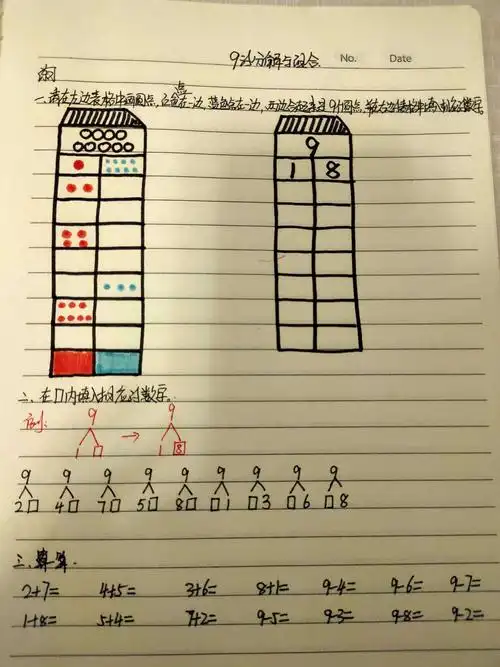 9的分解与组合 No. Date
一、请在左边表格中画圆点，红色点在一边，蓝色点在一边，两边合起来是9个圆点，在右边表格中填入相应数字
9
1 8
二、在口内填入相应的数字。
例: 9 → 9
1 □ 1 8
9 9 9 9 9 9 9 9 9
2□ 4□ 7□ 5□ 8□ □1 □3 □6 □8
三、算一算.
2+7= 4+5= 3+6= 8+1= 9-4= 9-6= 9-7=
1+8= 5+4= 7+2= 9-5= 9-3= 9-8= 9-2=